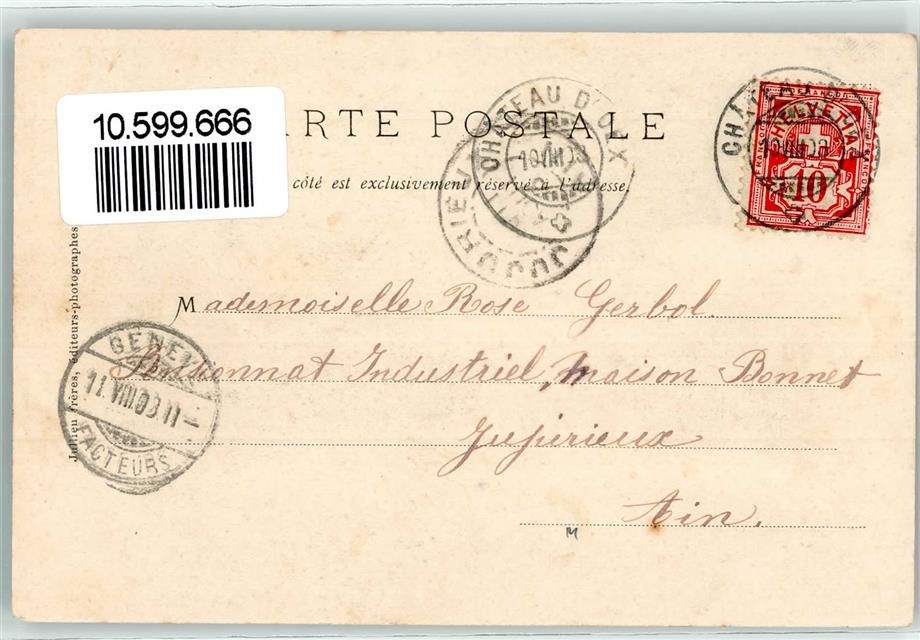 10.599.666
ARTE POSTALE
côté est exclusivement réservé à l'adresse.
Jullien frères, éditeurs-photographes
CHATEAU D'OEX
10.VIII.03
JUJURIEUX
CHÂTEAU
10.VIII.03
HELVETIA
FRANCO
10
Mademoiselle Rose Gerbol.
Pensionnat Industriel, maison Bonnet
Jujurieux
Ain.
GENEVE
11.VIII.03.11
FACTEURS
M